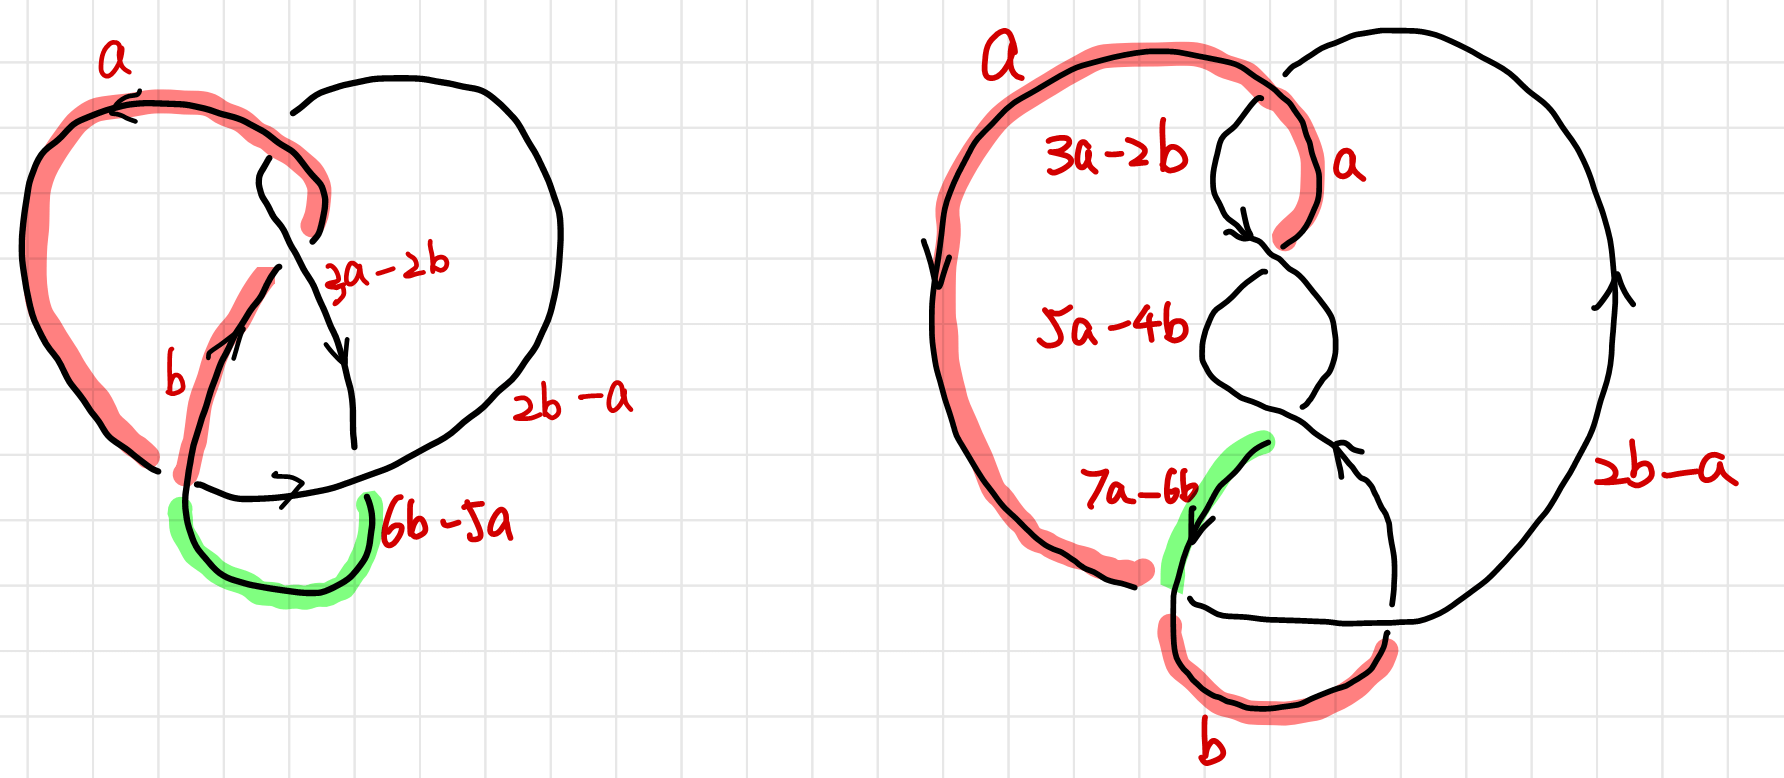 a
3a-2b
b
2b-a
6b-5a
a
3a-2b
a
5a-4b
7a-6b
2b-a
b